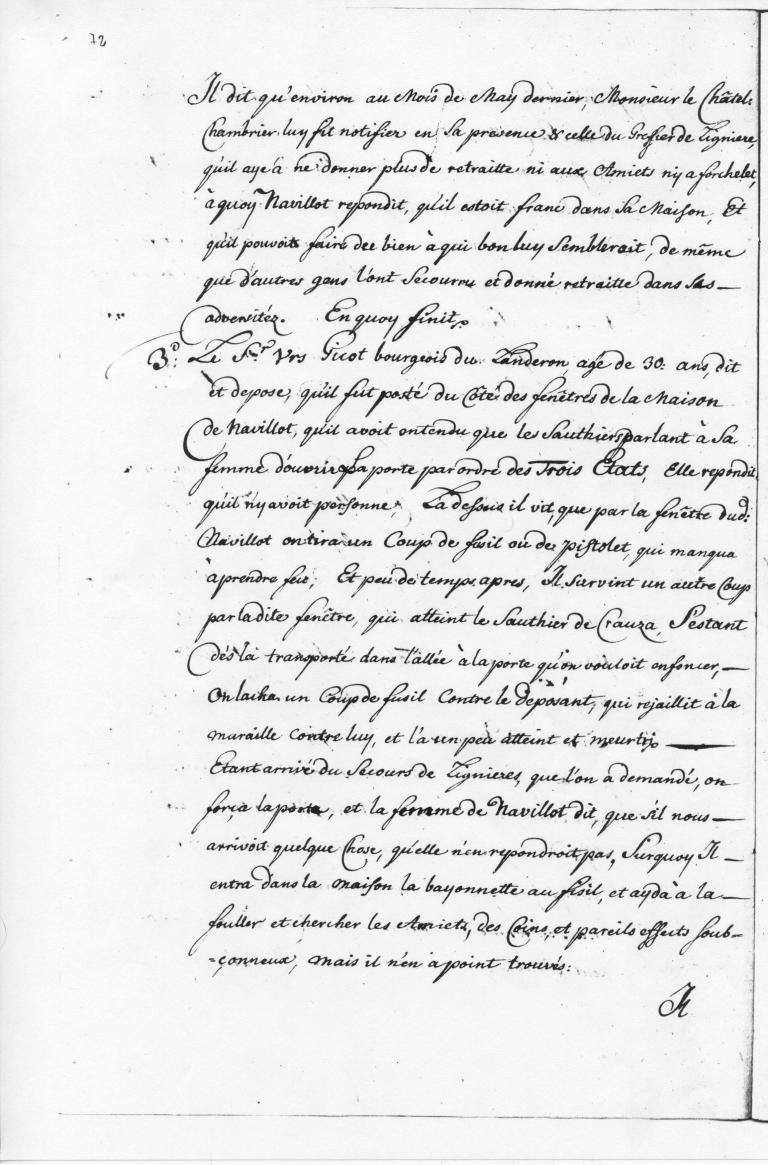 72
Il dit qu'environ au Mois de May dernier, Monsieur le Châtel:
Chambrier luy fit notifier en sa presence & celle du Greffier de Ligniere,
qu'il aye à ne donner plus de retraitte ni aux Amiets ny a forchelet,
à quoy Navillot repondit, qu'il estoit franc dans sa Maison, Et
qu'il pouvoit faire dee bien à qui bon luy Semblerait, de même
que d'autres gens l'ont Secourru et donné retraitte dans ses —
adversitéz. En quoy finit.
3.º Le S.r Vrs Gicot bourgeois du Landeron, agé de 30: ans, dit
et depose, qu'il fut posté du Côté des fenêtres de la Maison
de Navillot, qu'il avoit entendu que les Sauthiers parlant à Sa
femme d'ouvrir la porte par ordre des Trois Etats, Elle repondit
qu'il n'y avoit personne, La dessus il vit, que par la fenêtre dud:
Navillot on tira un Coup de fusil ou de pistolet, qui manqua
à prendre feu, Et peu de temps apres, Il Survint un autre Coup
par ladite fenêtre, qui atteint le Sauthier de Crauza, S'estant
dés là transporté dans l'allée à la porte qu'on vouloit enfoncer, —
On lacha un Coup de fusil Contre le Déposant, qui rejaillit à la
muraille Contre luy, et l'a un peu atteint et meurtry —
Etant arrivé du Secours de Lignieres, que l'on a demandé, on
força la porte, et la femme de Navillot dit, que s'il nous —
arrivoit quelque Chose, qu'elle n'en repondroit pas, Surquoy Il —
entra dans la maison la bayonnette au fisil, et ayda à la —
fouller et chercher les Amiets, des Coins, et pareils effects soub-
=çonneux, mais il n'en a point trouvés:
Il